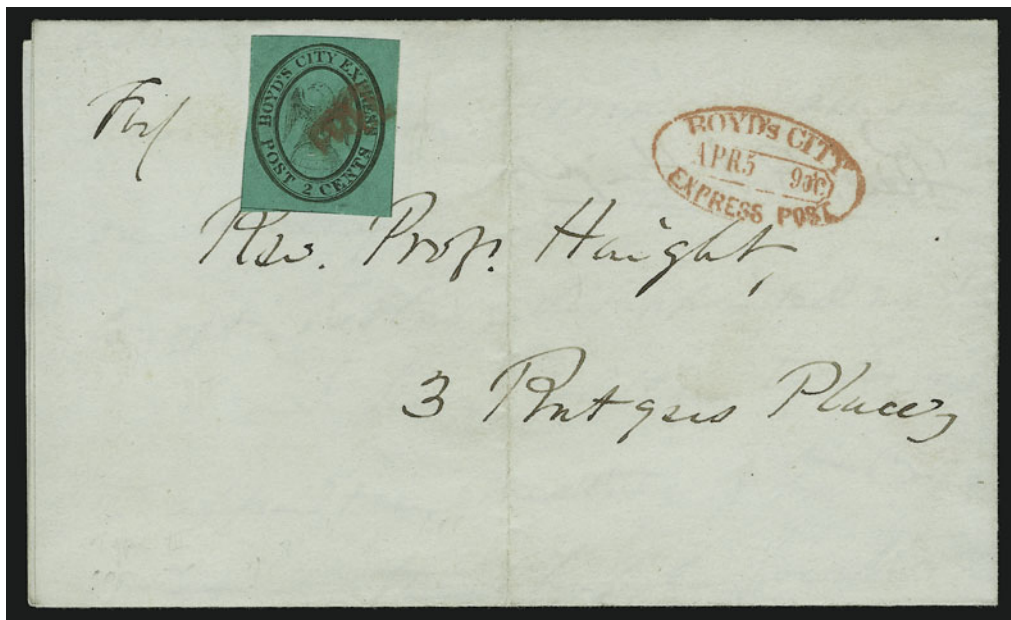 BOYD'S CITY EXPRESS
POST 2 CENTS
BOYD's CITY
APR 5 9 o'C
EXPRESS POST
Rev. Prof. Haight,
3 Rutgers Place,